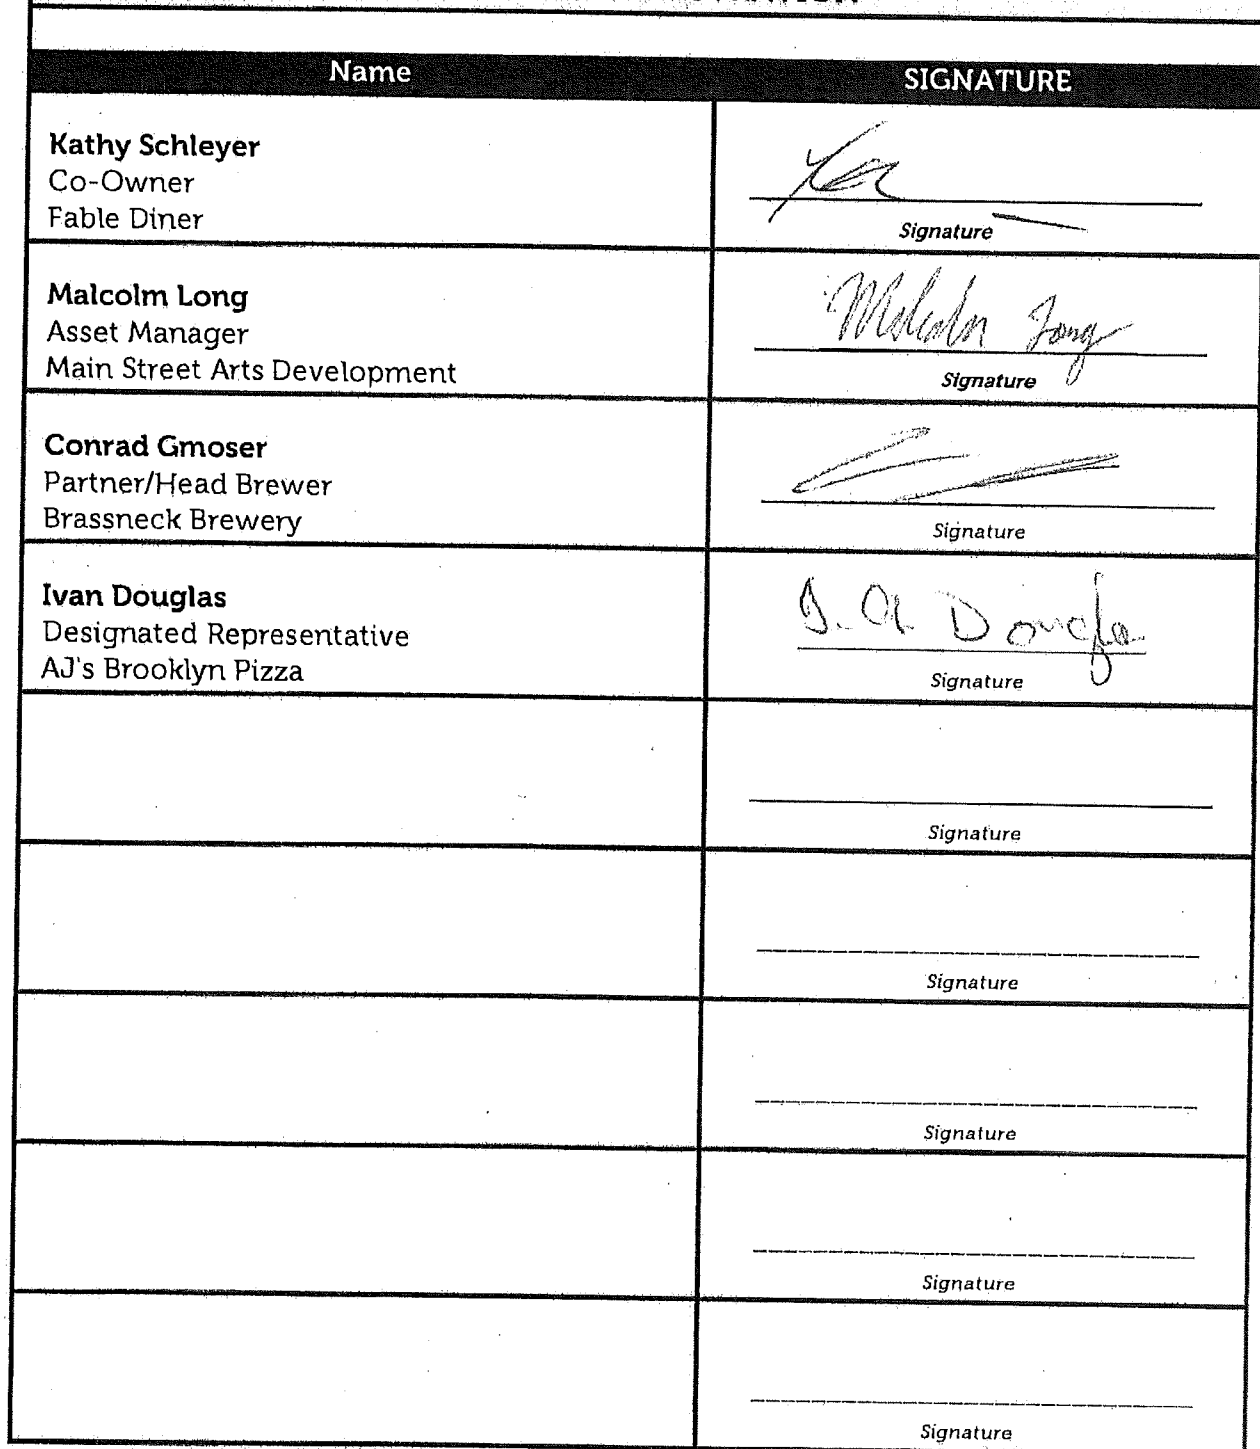 Name
SIGNATURE
Kathy Schleyer
Co-Owner
Fable Diner
Signature
Malcolm Long
Asset Manager
Main Street Arts Development
Malcolm Long
Signature
Conrad Gmoser
Partner/Head Brewer
Brassneck Brewery
Signature
Ivan Douglas
Designated Representative
AJ's Brooklyn Pizza
Signature
Signature
Signature
Signature
Signature
Signature